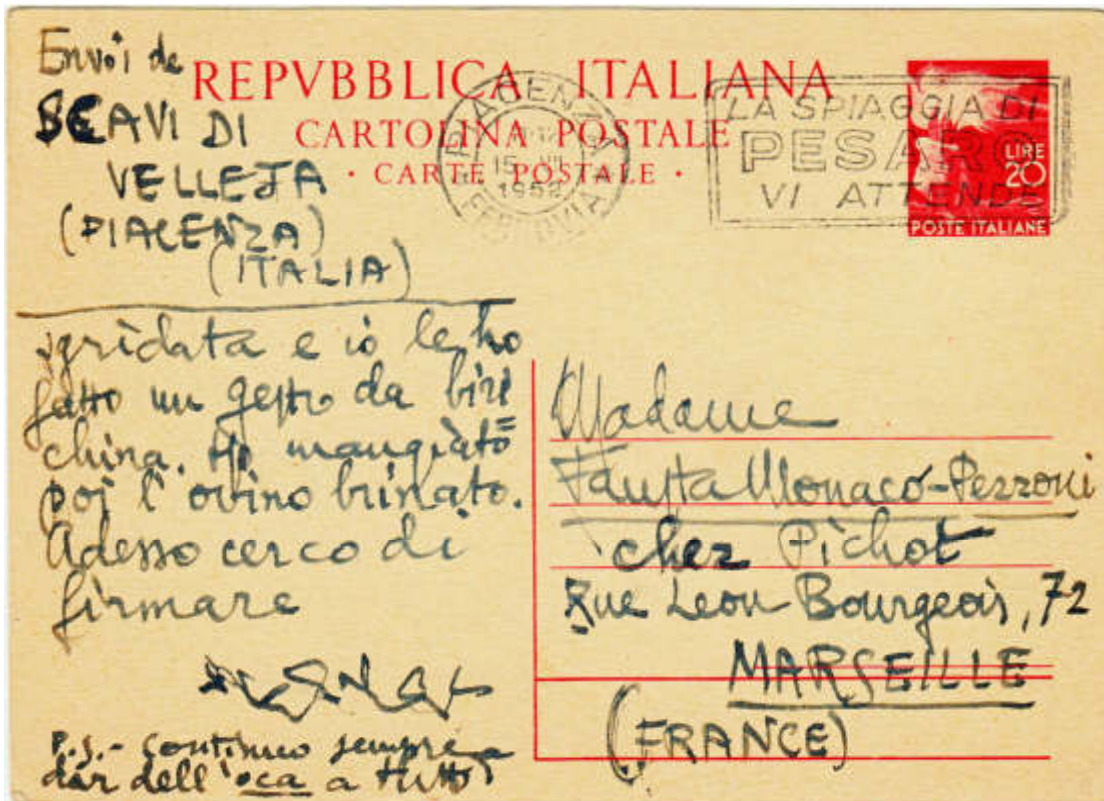 Envoi de
SCAVI DI
VELLEJA
(PIACENZA)
(ITALIA)
REPVBBLICA ITALIANA
CARTOLINA POSTALE
· CARTE POSTALE ·
PIACENZA
15 VII
1952
FERROVIA
LA SPIAGGIA DI
PESARO
VI ATTENDE
LIRE
20
POSTE ITALIANE
sgridata e io le ho
fatto un gesto da biri=
china. Ho mangiato
poi l'ovino brinato.
Adesso cerco di
firmare
P.S.- Continuo sempre a
dar dell'oca a tutti
Madame
Fausta Monaco-Pezzoni
chez Pichot
Rue Leon Bourgeois, 72
MARSEILLE
(FRANCE)